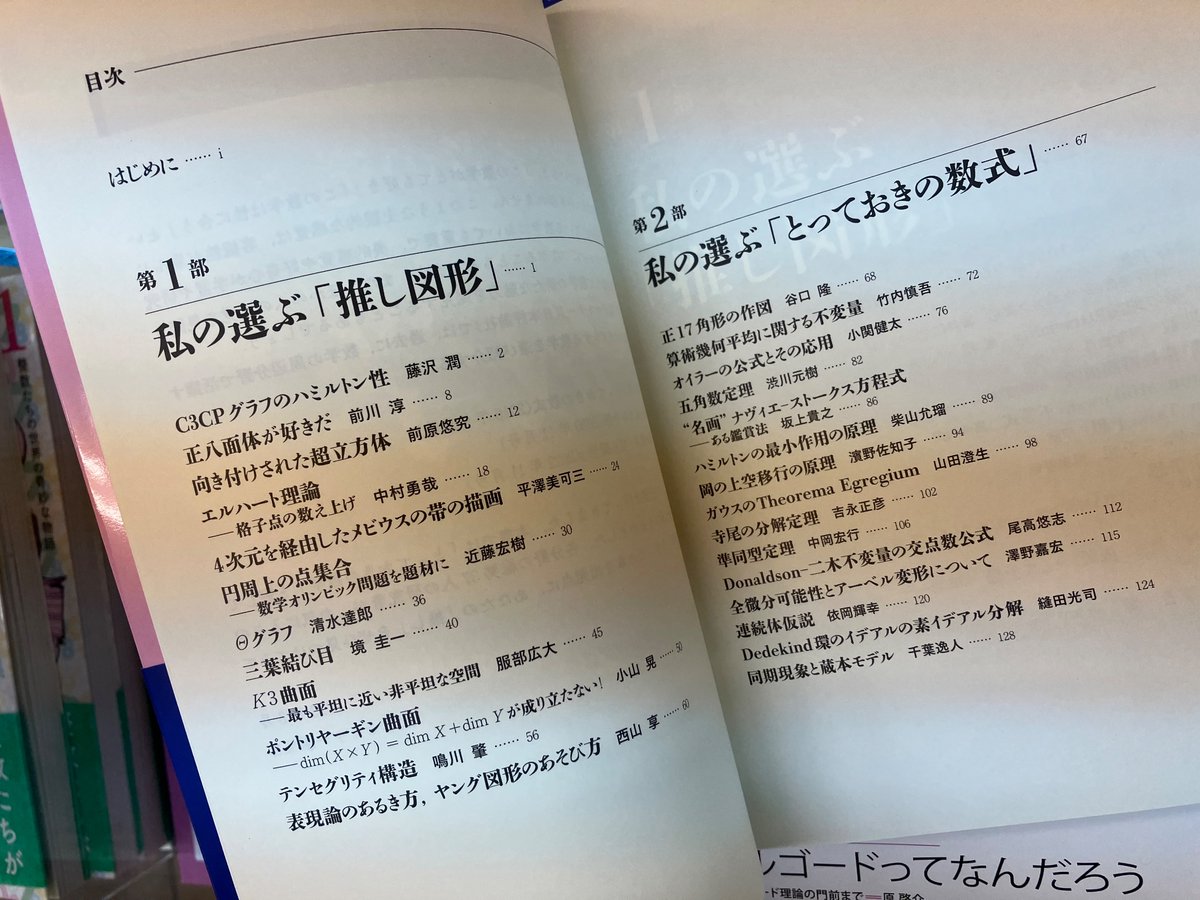 目次
はじめに …… i
第1部
私の選ぶ「推し図形」 …… 1
C3CPグラフのハミルトン性 藤沢 潤 …… 2
正八面体が好きだ 前川 淳 …… 8
向き付けされた超立方体 前原悠究 …… 12
エルハート理論
——格子点の数え上げ 中村勇哉 …… 18
4次元を経由したメビウスの帯の描画 平澤美可三 …… 24
円周上の点集合
——数学オリンピック問題を題材に 近藤宏樹 …… 30
Θグラフ 清水達郎 …… 36
三葉結び目 境 圭一 …… 40
K3曲面
——最も平坦に近い非平坦な空間 服部広大 …… 45
ポントリヤーギン曲面
——dim(X×Y) = dim X+dim Yが成り立たない! 小山 晃 …… 50
テンセグリティ構造 鳴川 肇 …… 56
表現論のあるき方,ヤング図形のあそび方 西山 享 …… 60
第2部
私の選ぶ「とっておきの数式」 …… 67
正17角形の作図 谷口 隆 …… 68
算術幾何平均に関する不変量 竹内慎吾 …… 72
オイラーの公式とその応用 小関健太 …… 76
五角数定理 渋川元樹 …… 82
“名画”ナヴィエーストークス方程式
——ある鑑賞法 坂上貴之 …… 86
ハミルトンの最小作用の原理 柴山允瑠 …… 89
岡の上空移行の原理 濱野佐知子 …… 94
ガウスのTheorema Egregium 山田澄生 …… 98
寺尾の分解定理 吉永正彦 …… 102
準同型定理 中岡宏行 …… 106
Donaldson–二木不変量の交点数公式 尾高悠志 …… 112
全微分可能性とアーベル変形について 澤野嘉宏 …… 115
連続体仮説 依岡輝幸 …… 120
Dedekind環のイデアルの素イデアル分解 縫田光司 …… 124
同期現象と蔵本モデル 千葉逸人 …… 128
ルゴードってなんだろう